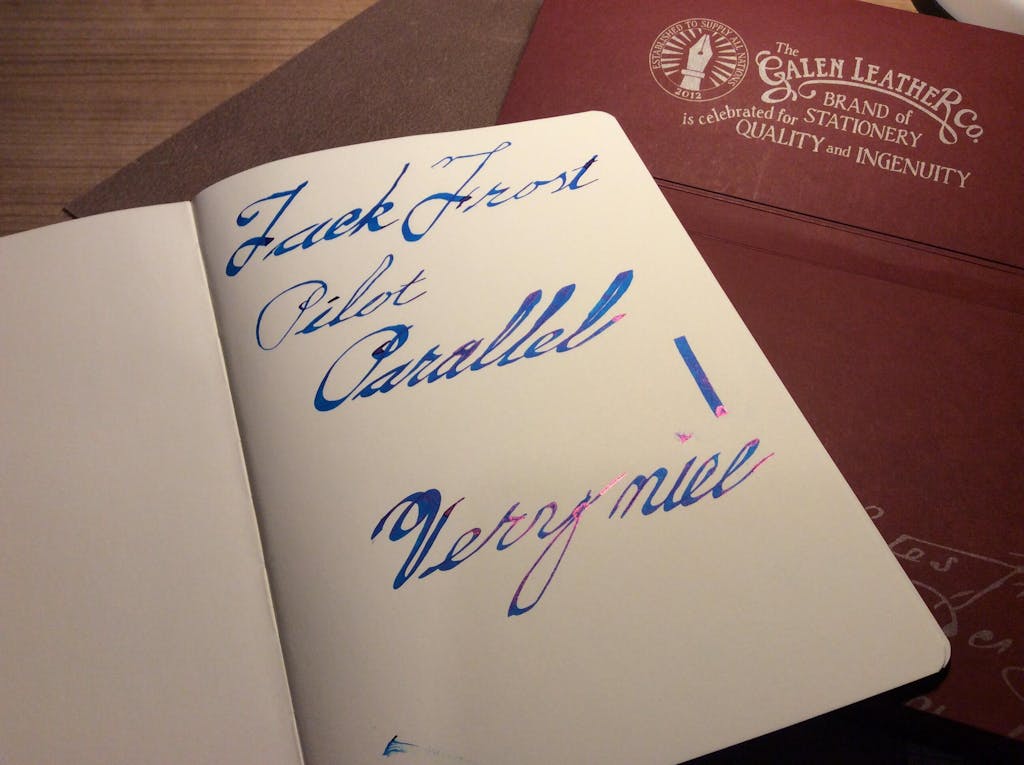 Jack Frost
Pilot
Parallel
Verry nice
ESTABLISHED TO SUPPLY ALL NATIONS
2012
The
GALEN LEATHER Co.
BRAND of
is celebrated for STATIONERY
QUALITY and INGENUITY